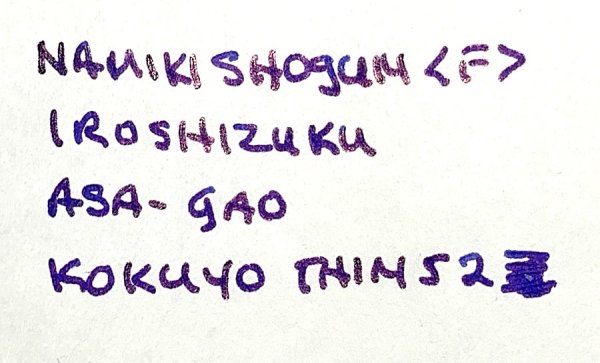 NAMIKI SHOGUN <F>
IROSHIZUKU
ASA-GAO
KOKUYO THIN 52